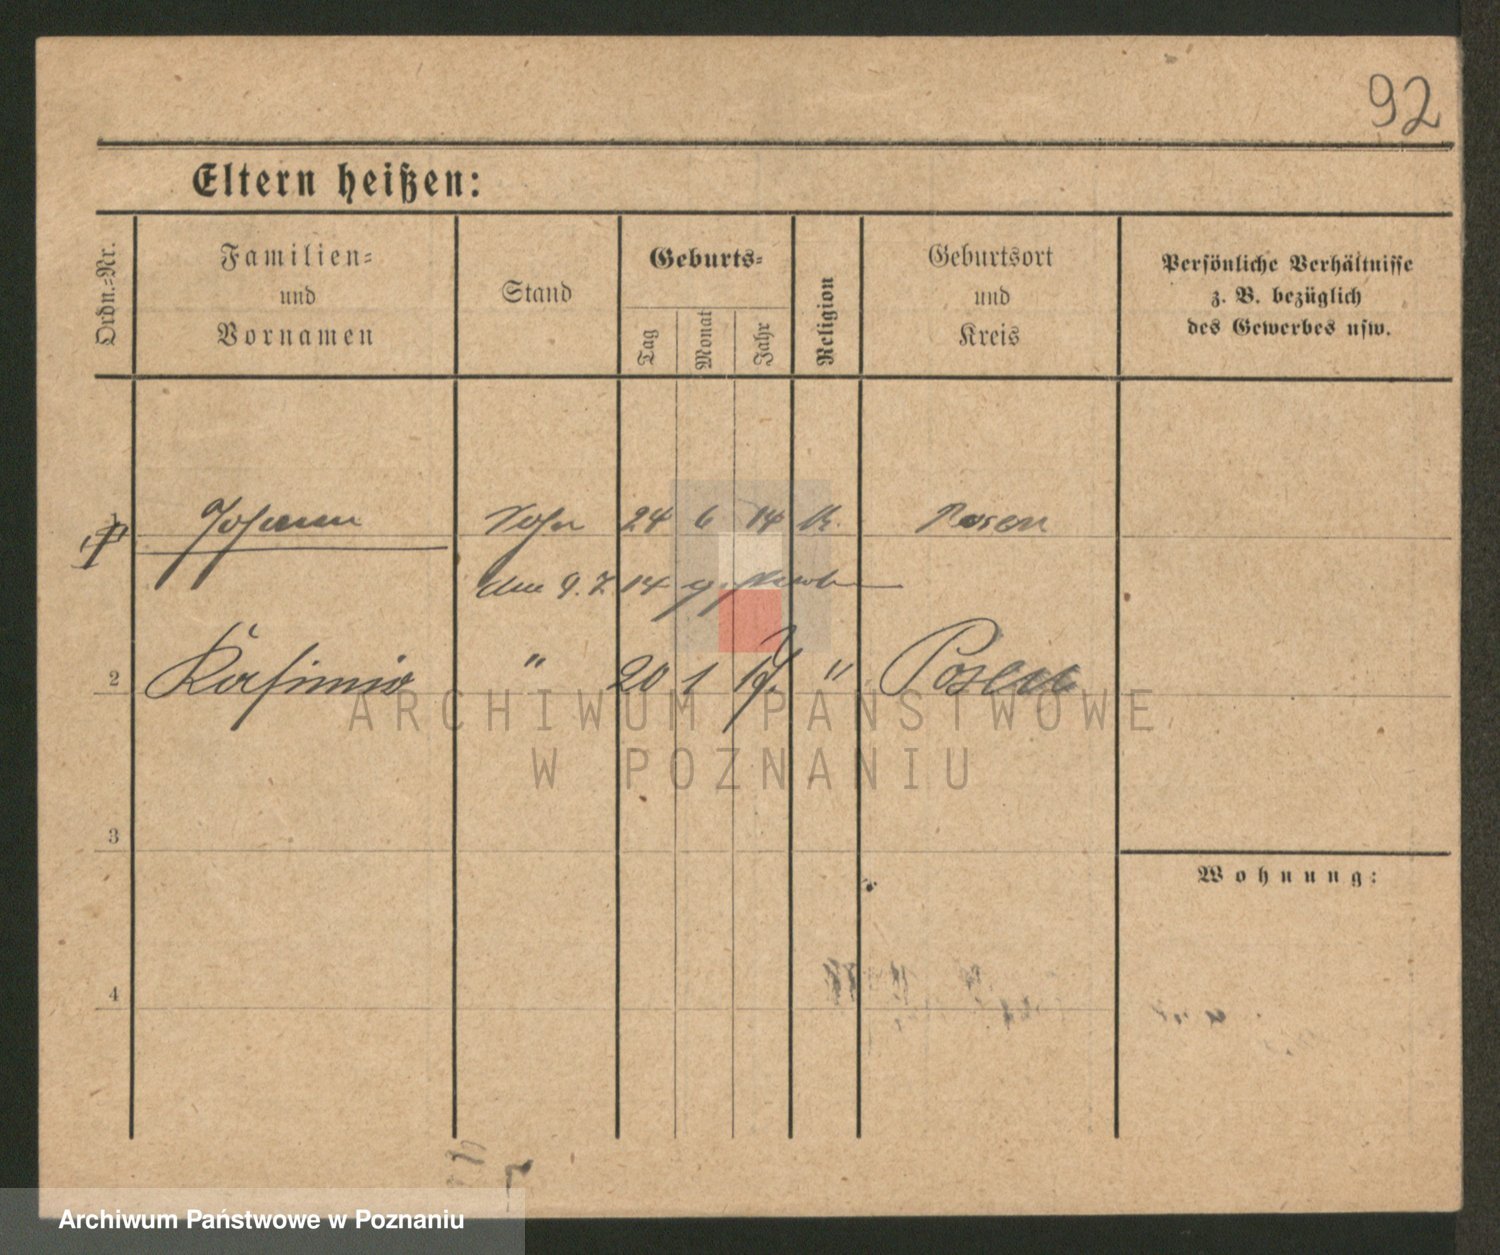 92
Eltern heißen:
Ordn.-Nr.
Familien-
und
Vornamen
Stand
Geburts-
Tag
Monat
Jahr
Religion
Geburtsort
und
Kreis
Persönliche Verhältnisse
z. B. bezüglich
des Gewerbes usw.
1 Johann Sohn 24 6 14 K. Posen
den 9. 7. 14 gestorben
2 Kasimir " 20 1 " Posen
3
4
Wohnung:
ARCHIWUM PAŃSTWOWE
W POZNANIU
Archiwum Państwowe w Poznaniu